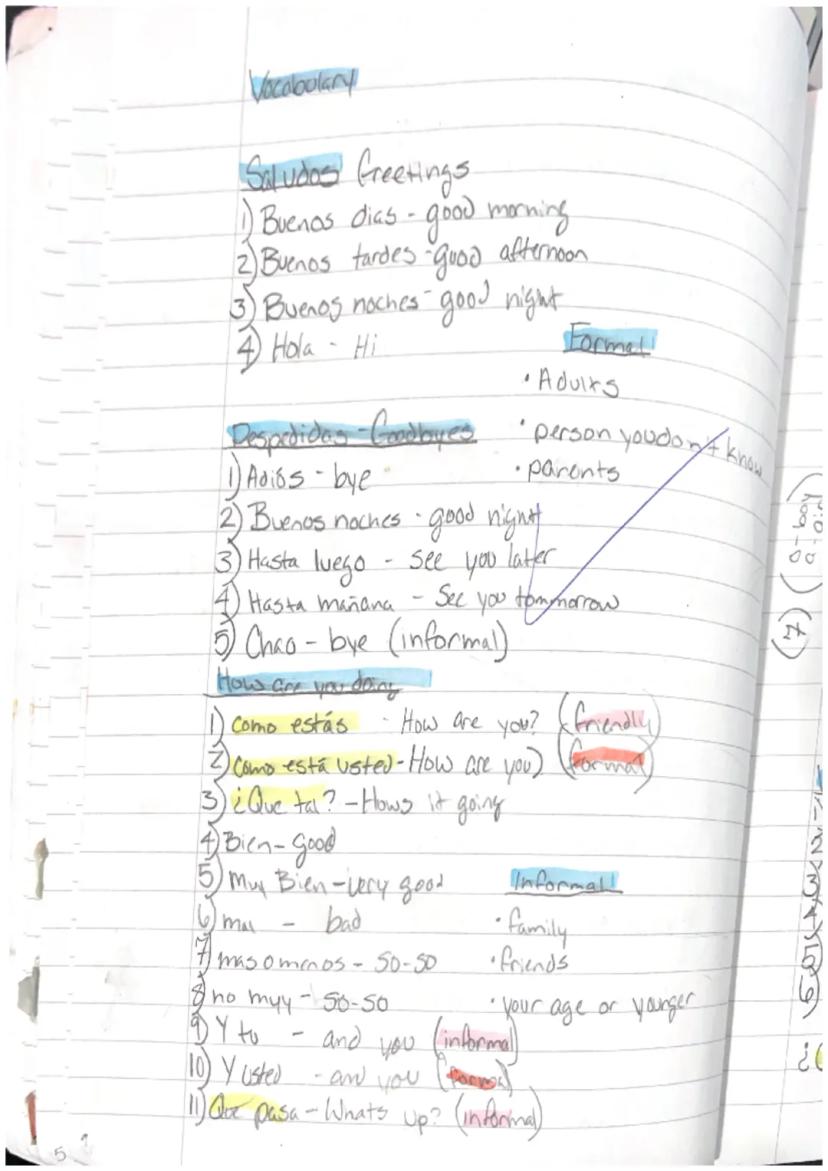 Vocabulary
Saludos Greetings
1) Buenos dias - good morning
2) Buenos tardes - good afternoon
3) Buenos noches - good night
4) Hola - Hi
Formal
• Adults
• person you don't know
• parents
Despedidas - Goodbyes
1) Adiós - bye
2) Buenos noches - good night
3) Hasta luego - see you later
4) Hasta mañana - See you tommorrow
5) Chao - bye (informal)
How are you doing
1) como estás - How are you? (friendly)
2) como está usted - How are you) (formal)
3) ¿Que tal? - Hows it going
4) Bien - good
5) muy Bien - very good
6) mal - bad
7) mas o menos - so-so
8) no muy - so-so
9) Y tu - and you (informal)
10) Y usted - and you (formal)
11) Que pasa - Whats up? (informal)
Informal
• family
• friends
• your age or younger
5